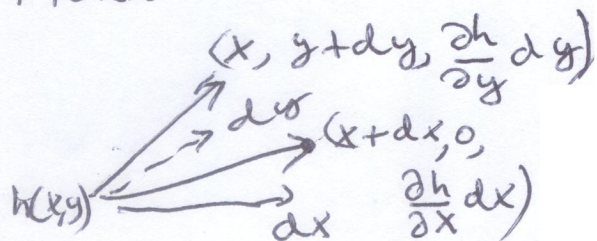 (x, y+dy, ∂h/∂y dy)
dy
(x+dx, 0,
h(x,y)
dx ∂h/∂x dx)